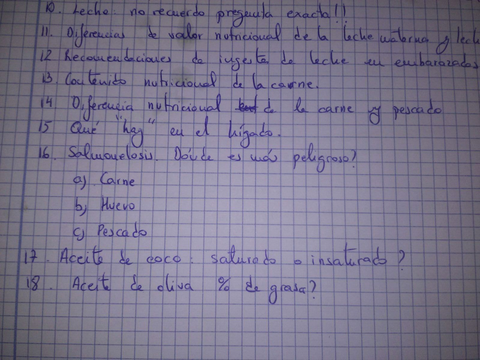 10. Leche: no recuerdo pregunta exacta!!
11. Diferencias de valor nutricional de la leche materna y
12 Recomendaciones de ingesta de leche en embarazadas
13 Contenido nutricional de la carne.
14 Diferencia nutricional de la carne y pescado
15 Qué "hay" en el hígado.
16. Salmonelosis. Dónde es más peligroso?
a) Carne
b) Huevo
c) Pescado
17. Aceite de coco: saturado o insaturado?
18. Aceite de oliva % de grasa?